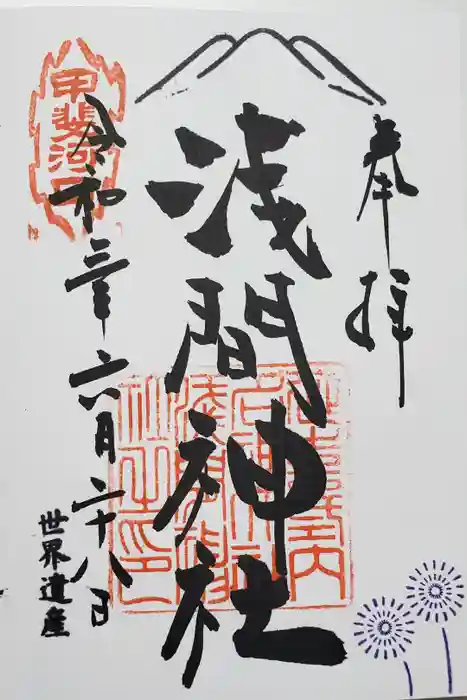 奉拝
浅間神社
令和三年六月二十八日
世界遺産
甲斐河口